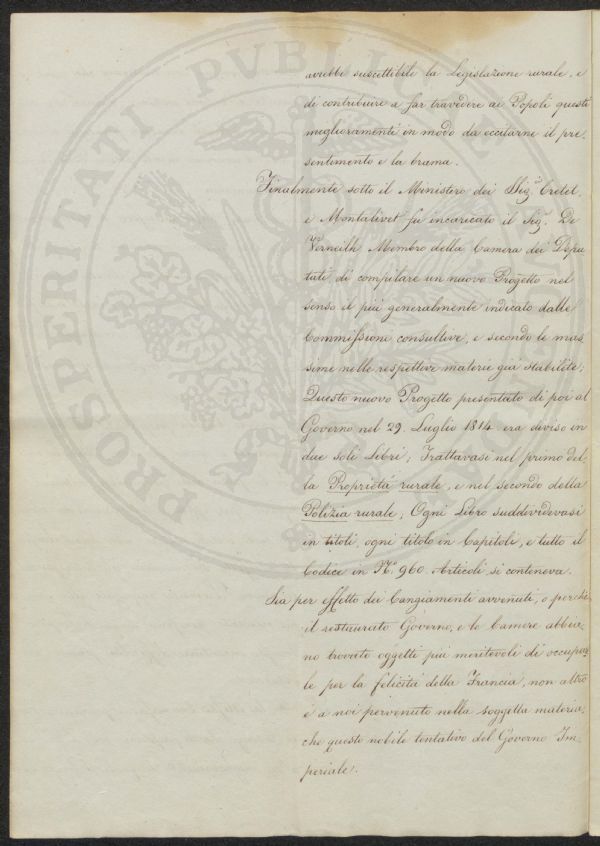 avrebbe suscettibile la Legislazione rurale, e
di contribuire a far travedere ai Popoli questi
miglioramenti in modo da eccitarne il pre-
sentimento e la brama.
Finalmente sotto il Ministero dei Sig.ri Cretet,
e Montalivet fu incaricato il Sig.r De
Verneilh Membro della Camera dei Depu-
tati, di compilare un nuovo Progetto nel
senso il più generalmente indicato dalle
Commissioni consultive, e secondo le mas-
sime nelle respettive materie già stabilite;
Questo nuovo Progetto presentato di poi al
Governo nel 29. Luglio 1814. era diviso in
due soli Libri; Trattavasi nel primo del-
la Proprietà rurale, e nel secondo della
Polizia rurale; Ogni Libro suddividevasi
in titoli, ogni titolo in Capitoli, e tutto il
Codice in N.o 960. Articoli si conteneva.
Sia per effetto dei Cangiamenti avvenuti, o perchè
il restaurato Governo, e le Camere abbia-
no trovato oggetti più meritevoli di occupar-
le per la felicità della Francia, non altro
è a noi pervenuto nella soggetta materia,
che questo nobile tentativo del Governo Im-
periale.
PROSPERITATI PVBLICAE